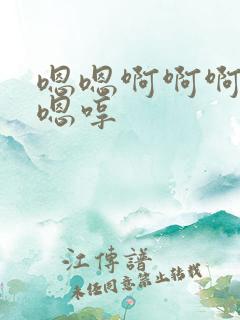 嗯嗯啊啊啊
嗯哼
江傳譜
未经同意禁止转载